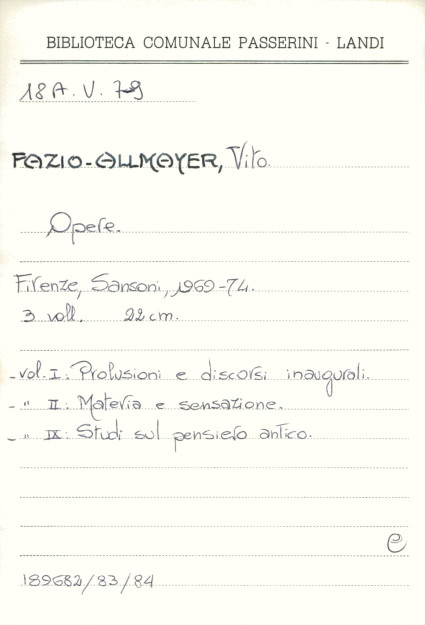 BIBLIOTECA COMUNALE PASSERINI - LANDI
18A. V. 79
FAZIO-ALLMAYER, Vito.
Opere.
Firenze, Sansoni, 1969-74.
3 voll. 22 cm.
- vol. I: Prolusioni e discorsi inaugurali.
- " II: Materia e sensazione.
- " IX: Studi sul pensiero antico.
e
189682/83/84